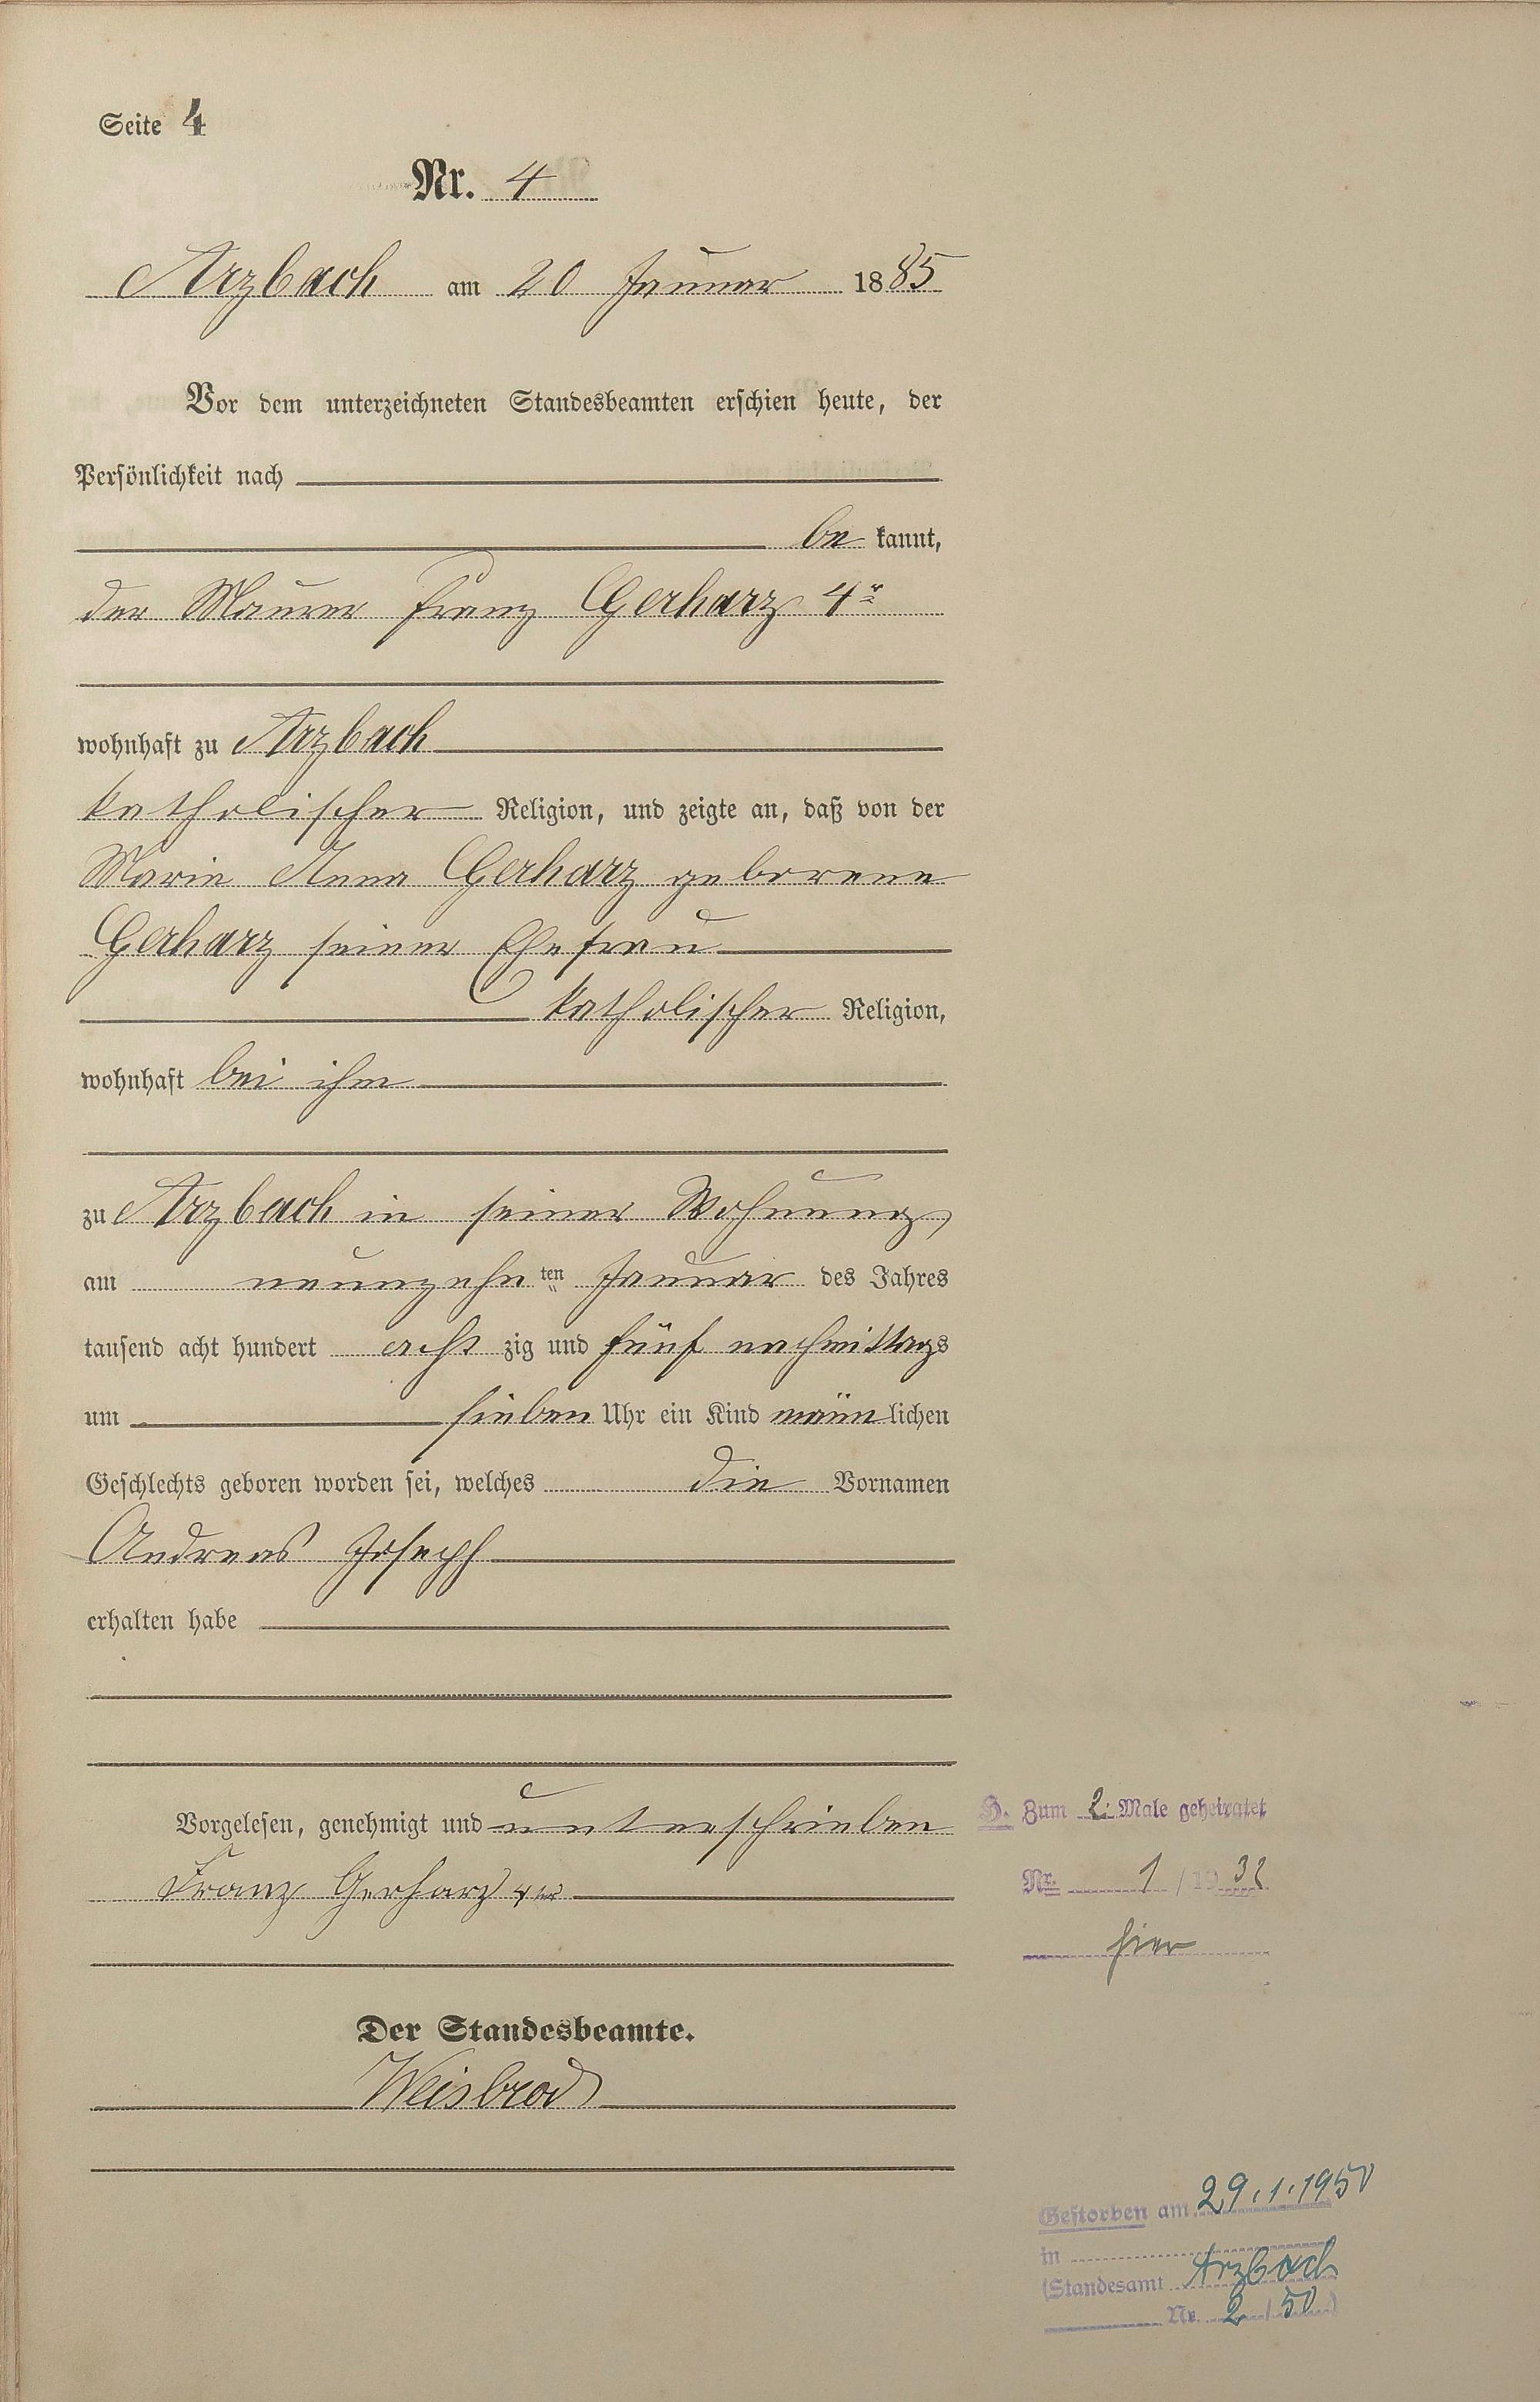 Seite 4
Nr. 4
Arzbach am 20 Januar 1885
Vor dem unterzeichneten Standesbeamten erschien heute, der
Persönlichkeit nach
be kannt,
der Maurer Franz Gerharz 4r
wohnhaft zu Arzbach
katholischer Religion, und zeigte an, daß von der
Maria Anna Gerharz geborene
Gerharz seiner Ehefrau
katholischer Religion,
wohnhaft bei ihm
zu Arzbach in seiner Wohnung
am neunzehn ten Januar des Jahres
tausend acht hundert acht zig und fünf nachmittags
um sieben Uhr ein Kind männlichen
Geschlechts geboren worden sei, welches die Vornamen
Andreas Joseph
erhalten habe
Vorgelesen, genehmigt und unterschrieben
Franz Gerharz 4er
Der Standesbeamte.
Weisbrod
H. Zum 2. Male geheiratet
Nr. 1/1932
hier
Gestorben am 29.1.1950
in
(Standesamt Arzbach
Nr. 2/50)